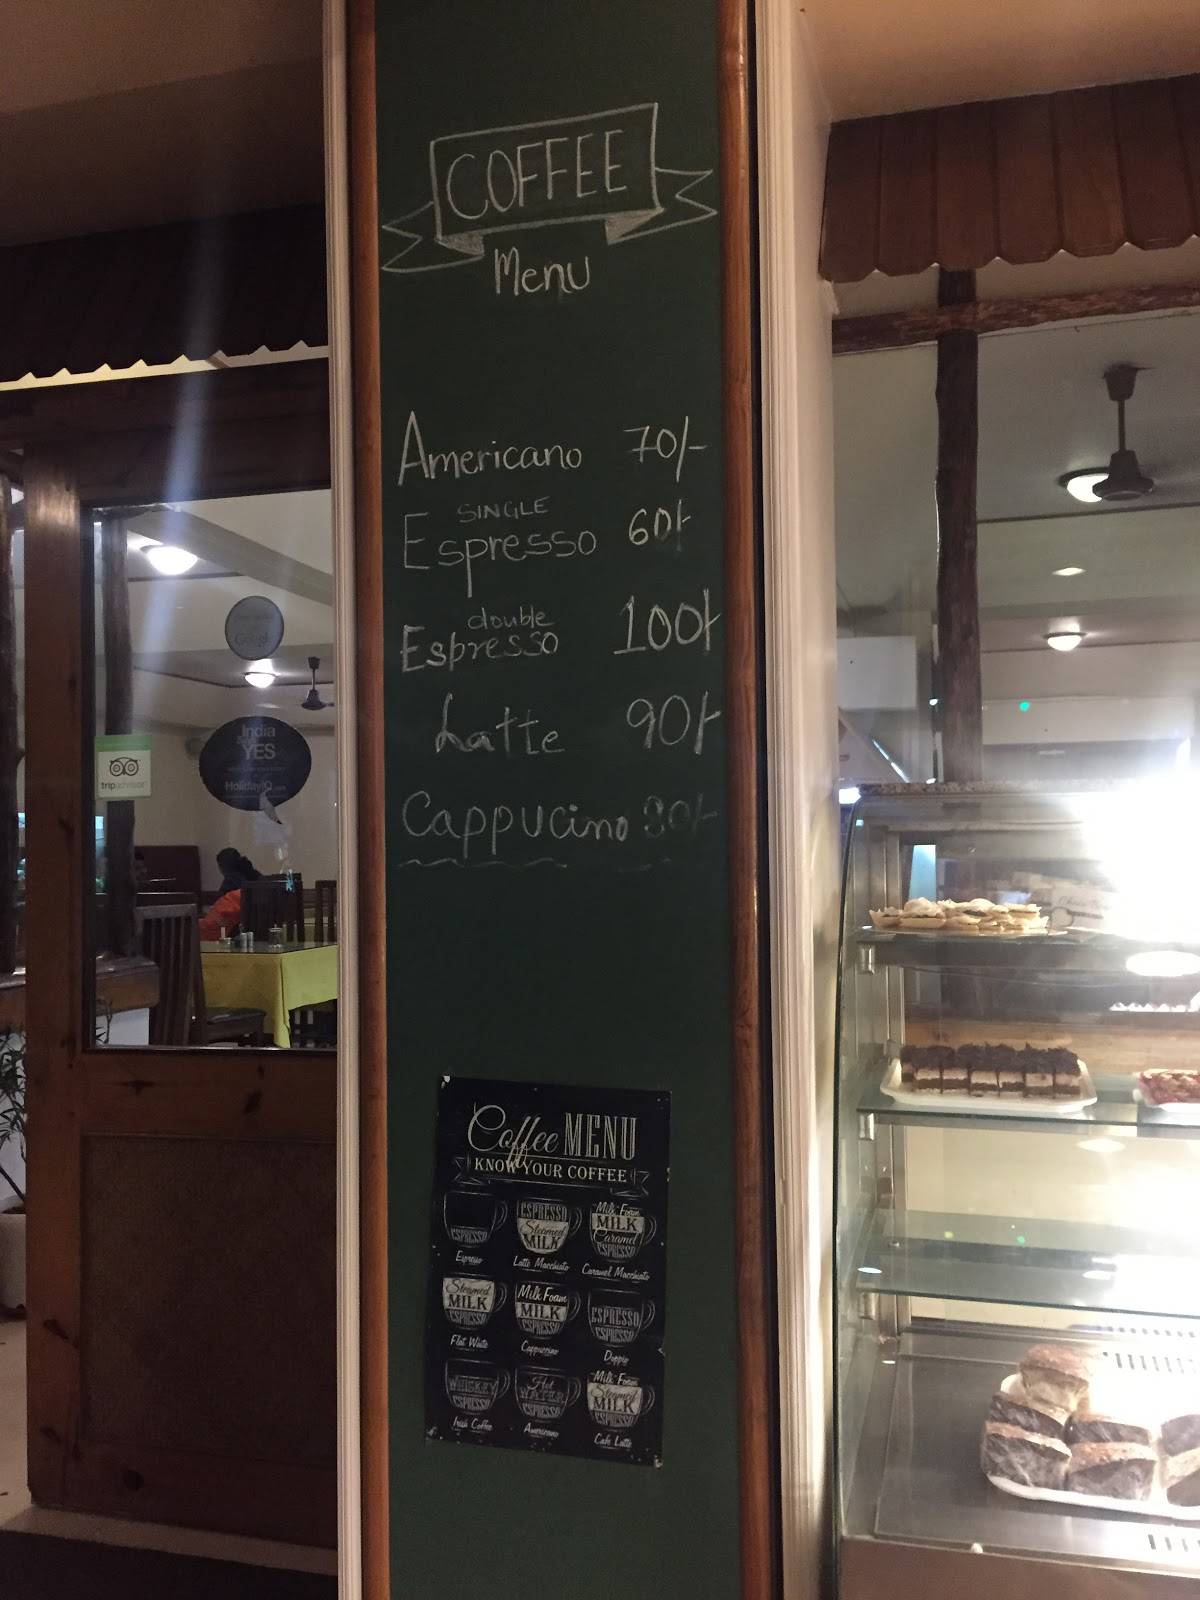 COFFEE
Menu
Americano 70/-
SINGLE
Espresso 60/-
double
Espresso 100/-
Latte 90/-
Cappucino
India
YES
HolidayIQ.com
tripadvisor
Google
Coffee MENU
KNOW YOUR COFFEE
ESPRESSO
Espresso
ESPRESSO
Steamed
MILK
Latte Macchiato
Milk Foam
MILK
Caramel
ESPRESSO
Caramel Macchiato
Steamed
MILK
ESPRESSO
Flat White
Milk Foam
MILK
ESPRESSO
Cappuccino
ESPRESSO
ESPRESSO
Doppio
WHISKEY
ESPRESSO
Irish Coffee
Hot
WATER
ESPRESSO
Americano
Milk Foam
Steamed
MILK
ESPRESSO
Cafe Latte